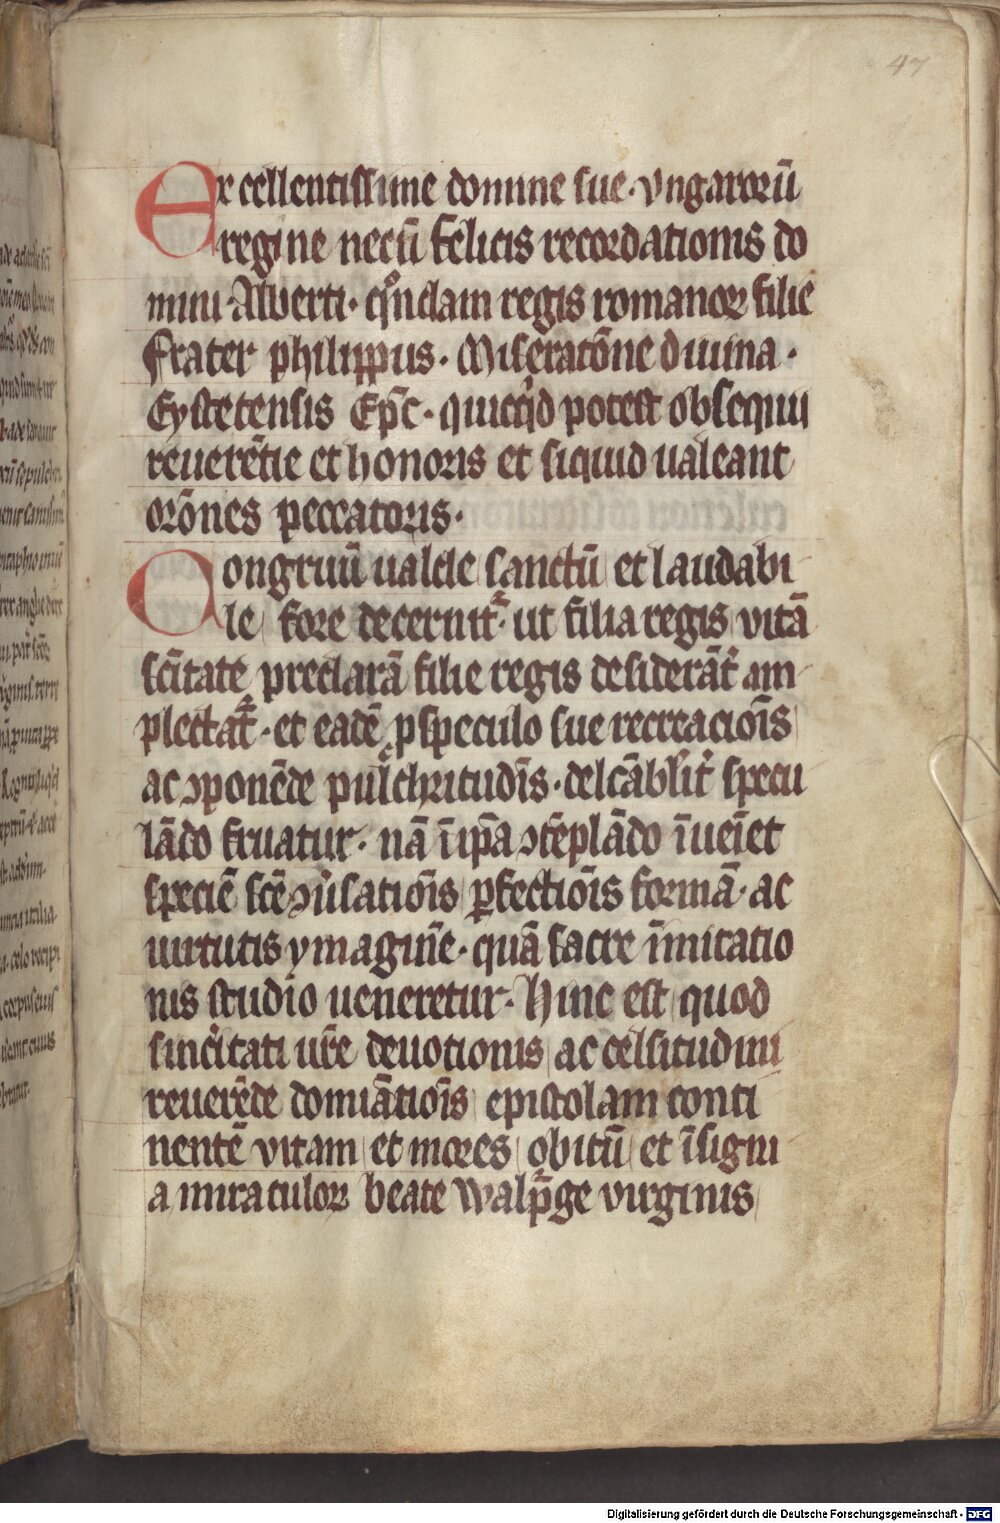 47
Excellentissime domine sue · vngarorū
regine necū felicis recordationis do
mini · Alberti · qͦndam regis romanoꝝ filie
Frater philippus · Miseratōne diuina ·
Eystetensis Ep̄c · quicqͥd potest obsequii
reuerētie et honoris et siquid ualeant
orōnes peccatoris ·
Congruū ualde sanctū et laudabi
le fore decernit᷑ · ut filia regis vitā
sc̄itate preclarā filie regis desiderāt᷑ am
plectat᷑ · et eadē p speculo sue recreaciōis
ac ꝯponēde pulchritudīs · delcāblit᷑ specu
lādo fruatur · nā ī ip̄a ꝯtēplādo īueīet
speciē sc̄e ꝯūsatiōis ꝑfectiōis formā · ac
uirtutis ymaginē · quā sacre īmitatio
nis studio ueneretur · Hinc est quod
sincͥitati ur̄e deuotionis ac celsitudini
reuerēde domināciōis epistolam conti
nentē vitam et mores obitū et īsigni
a miraculoꝝ beate Walpᷓge virginis
Digitalisierung gefördert durch die Deutsche Forschungsgemeinschaft - DFG